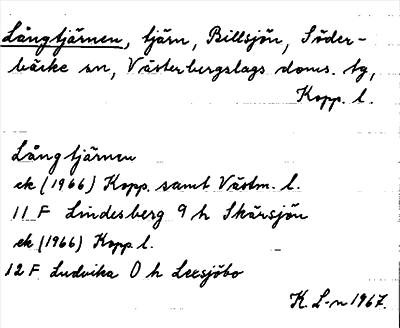 Långtjärnen, tjärn, Billsjön, Söder-
bärke sn, Västerbergslags doms. tg,
Kopp. l.
Långtjärnen
ek (1966) Kopp. samt Västm. l.
11 F Lindesberg 9 h Skärsjön
ek (1966) Kopp l.
12 F Ludvika 0 h Leesjöbo
K. L-n 1967.